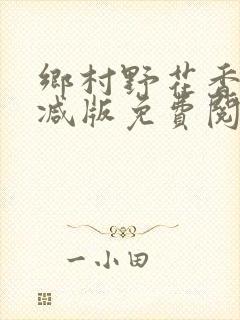 鄉村野花香
减版免費閱
一小田